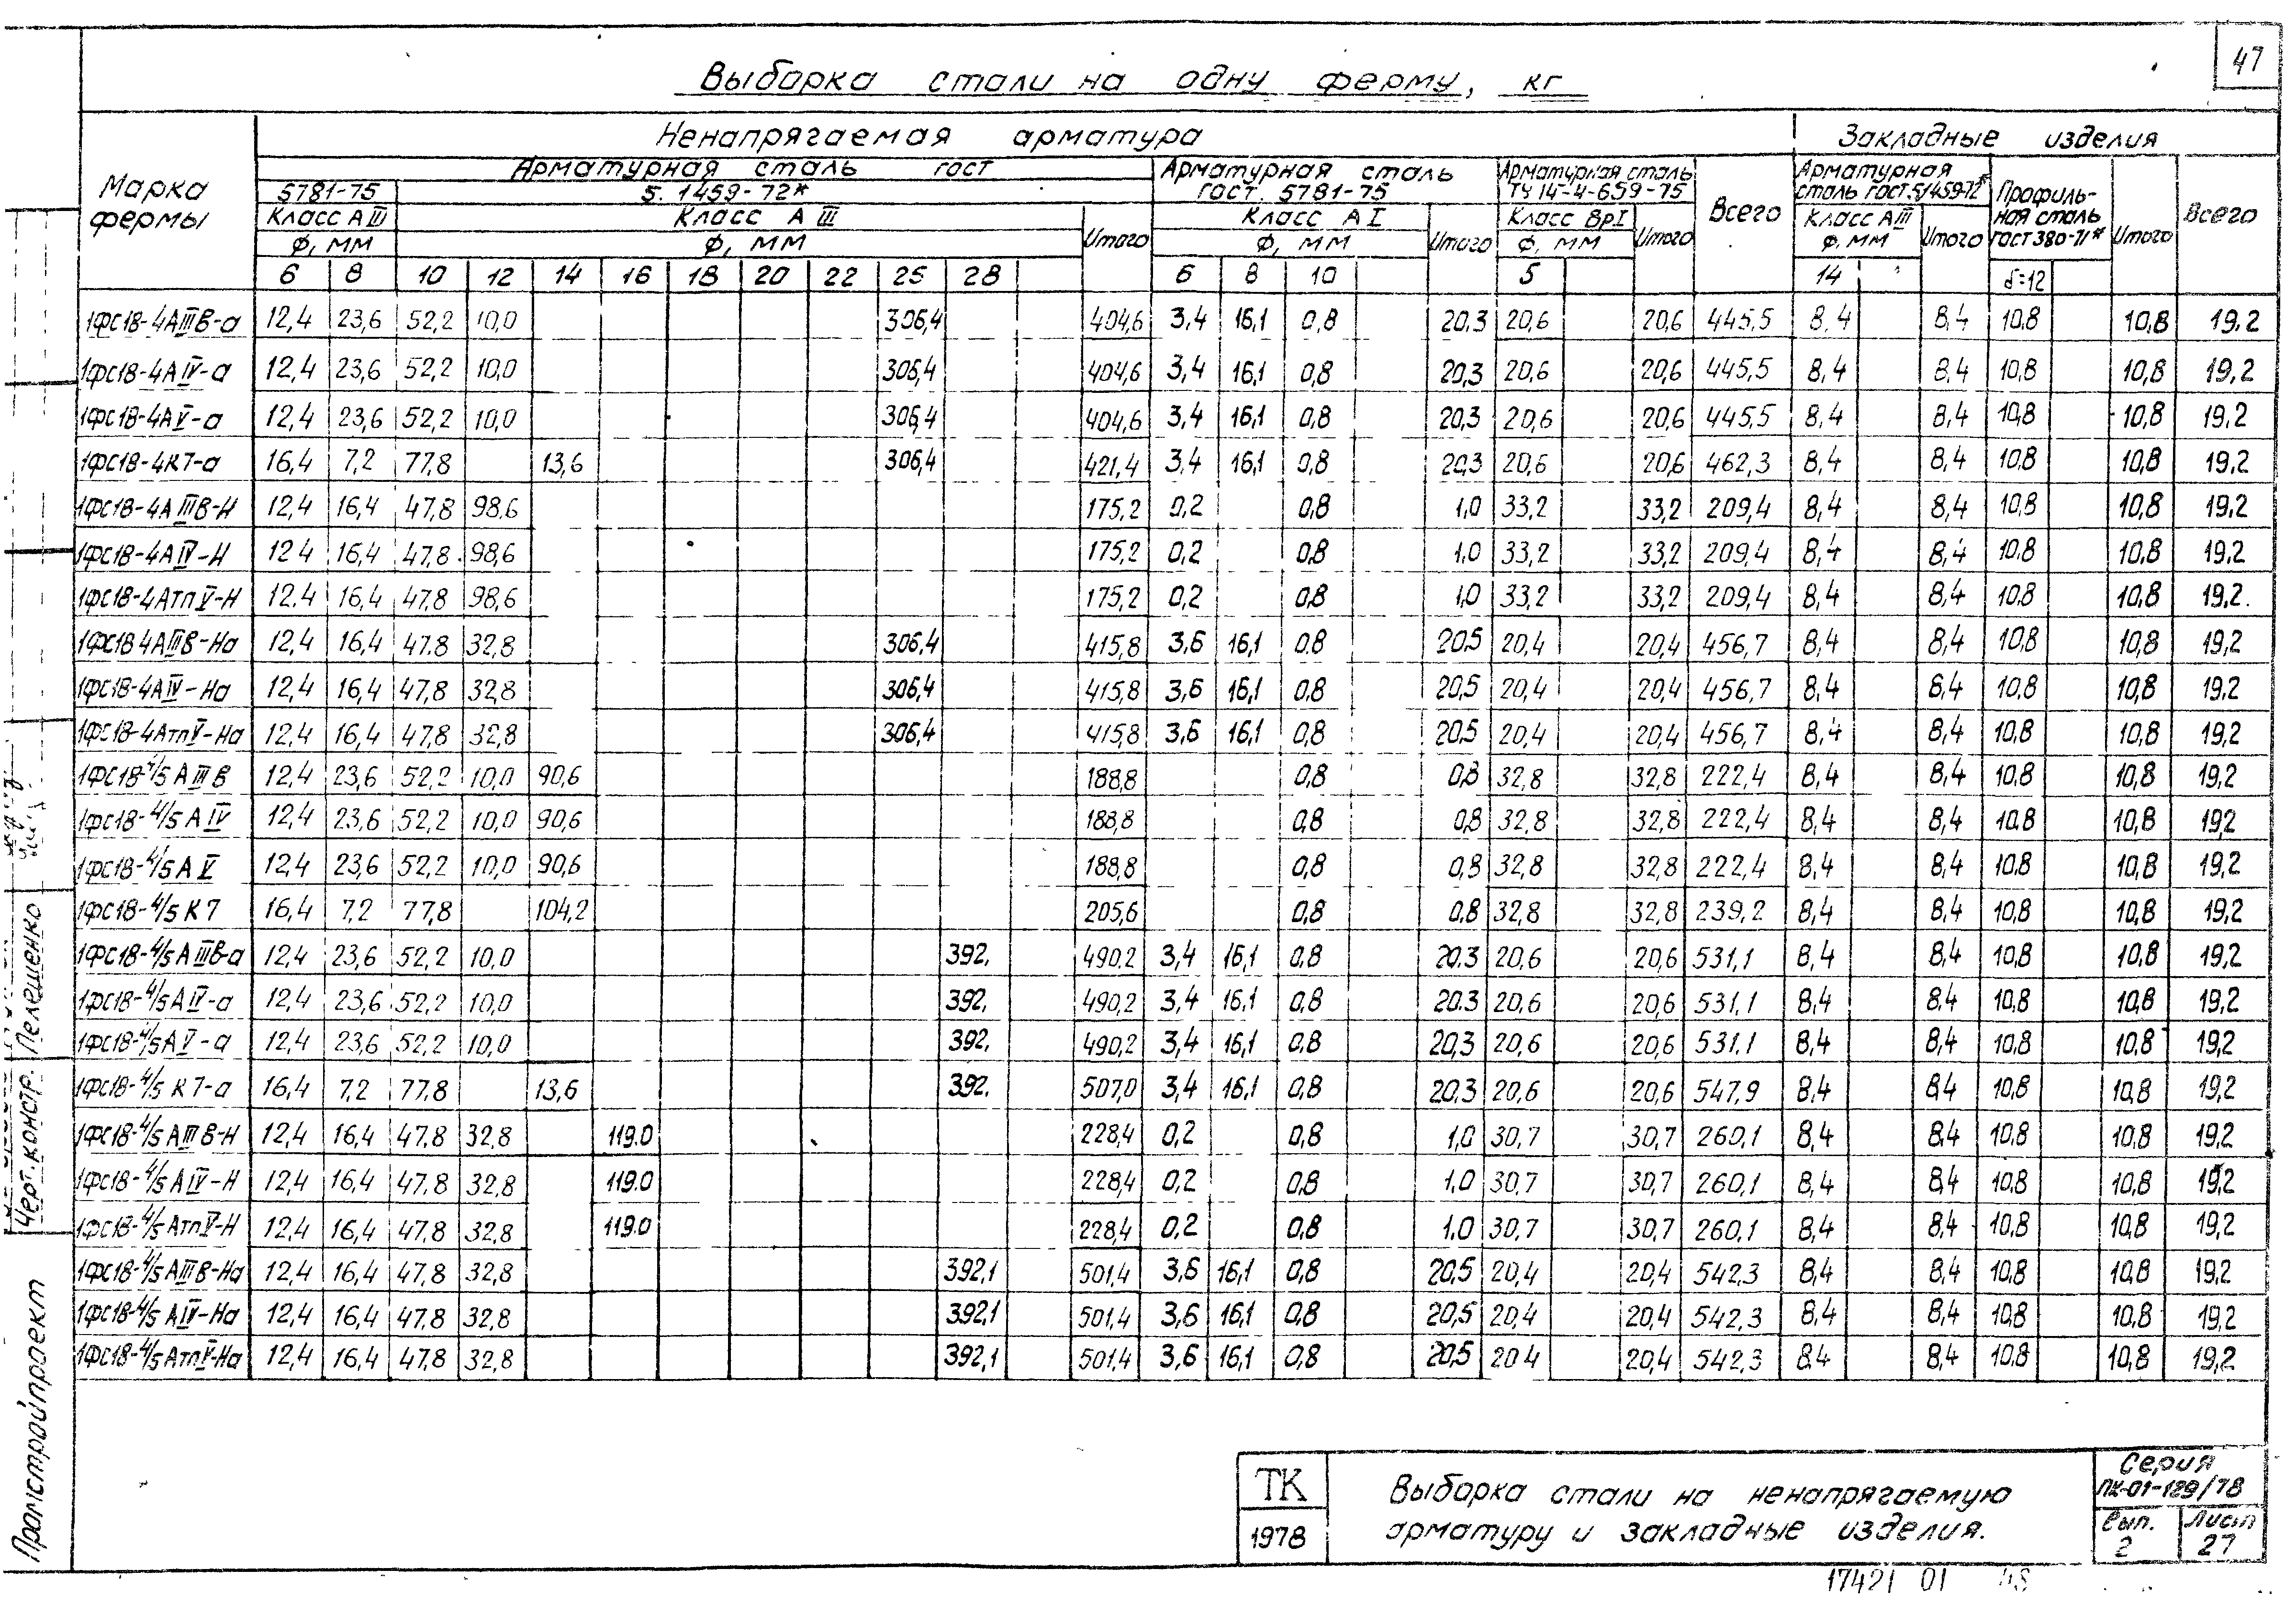 47
Выборка стали на одну ферму, кг
Марка фермы
Ненапрягаемая арматура
Закладные изделия
Арматурная сталь гост
5781-75
5.1459-72*
Класс А III
Класс А III
Ф, мм
Ф, мм
Итого
Арматурная сталь
Гост. 5781-75
Класс А I
Ф, мм
Итого
Арматурная сталь
ТУ 14-4-659-75
Класс Вр I
Ф, мм
Итого
Всего
Арматурная
сталь гост.51459-72*
Класс А III
Ф, мм
Итого
Профиль-
ная сталь
Гост 380-71*
Итого
Всего
6 8 10 12 14 16 18 20 22 25 28 6 8 10 5 14 δ=12
1ФС18-4АIIIв-а 12,4 23,6 52,2 10,0 306,4 404,6 3,4 16,1 0,8 20,3 20,6 20,6 445,5 8,4 8,4 10,8 10,8 19,2
1ФС18-4АIV-а 12,4 23,6 52,2 10,0 306,4 404,6 3,4 16,1 0,8 20,3 20,6 20,6 445,5 8,4 8,4 10,8 10,8 19,2
1ФС18-4АV-а 12,4 23,6 52,2 10,0 306,4 404,6 3,4 16,1 0,8 20,3 20,6 20,6 445,5 8,4 8,4 10,8 10,8 19,2
1ФС18-4К7-а 16,4 7,2 77,8 13,6 306,4 421,4 3,4 16,1 0,8 20,3 20,6 20,6 462,3 8,4 8,4 10,8 10,8 19,2
1ФС18-4АIIIв-Н 12,4 16,4 47,8 98,6 175,2 0,2 0,8 1,0 33,2 33,2 209,4 8,4 8,4 10,8 10,8 19,2
1ФС18-4АIV-Н 12 4 16,4 47,8 98,6 175,2 0,2 0,8 1,0 33,2 33,2 209,4 8,4 8,4 10,8 10,8 19,2
1ФС18-4АтпV-Н 12,4 16,4 47,8 98,6 175,2 0,2 0,8 1,0 33,2 33,2 209,4 8,4 8,4 10,8 10,8 19,2.
1ФС18 4АIIIв-На 12,4 16,4 47,8 32,8 306,4 415,8 3,6 16,1 0,8 20,5 20,4 20,4 456,7 8,4 8,4 10,8 10,8 19,2
1ФС18-4АIV-На 12,4 16,4 47,8 32,8 306,4 415,8 3,6 16,1 0,8 20,5 20,4 20,4 456,7 8,4 8,4 10,8 10,8 19,2
1ФС18-4АтпV-На 12,4 16,4 47,8 32,8 306,4 415,8 3,6 16,1 0,8 20,5 20,4 20,4 456,7 8,4 8,4 10,8 10,8 19,2
1ФС18-4/5 АIIIв 12,4 23,6 52,2 10,0 90,6 188,8 0,8 0,8 32,8 32,8 222,4 8,4 8,4 10,8 10,8 19,2
1ФС18-4/5 АIV 12,4 23,6 52,2 10,0 90,6 188,8 0,8 0,8 32,8 32,8 222,4 8,4 8,4 10,8 10,8 19,2
1ФС18-4/5 АV 12,4 23,6 52,2 10,0 90,6 188,8 0,8 0,8 32,8 32,8 222,4 8,4 8,4 10,8 10,8 19,2
1ФС18-4/5 К7 16,4 7,2 77,8 104,2 205,6 0,8 0,8 32,8 32,8 239,2 8,4 8,4 10,8 10,8 19,2
1ФС18-4/5 АIIIв-а 12,4 23,6 52,2 10,0 392, 490,2 3,4 16,1 0,8 20,3 20,6 20,6 531,1 8,4 8,4 10,8 10,8 19,2
1ФС18-4/5 АIV-а 12,4 23,6 52,2 10,0 392, 490,2 3,4 16,1 0,8 20,3 20,6 20,6 531,1 8,4 8,4 10,8 10,8 19,2
1ФС18-4/5 АV-а 12,4 23,6 52,2 10,0 392, 490,2 3,4 16,1 0,8 20,3 20,6 20,6 531,1 8,4 8,4 10,8 10,8 19,2
1ФС18-4/5 К7-а 16,4 7,2 77,8 13,6 392, 507,0 3,4 16,1 0,8 20,3 20,6 20,6 547,9 8,4 8,4 10,8 10,8 19,2
1ФС18-4/5 АIIIв-Н 12,4 16,4 47,8 32,8 119,0 228,4 0,2 0,8 1,0 30,7 30,7 260,1 8,4 8,4 10,8 10,8 19,2
1ФС18-4/5 АIV-Н 12,4 16,4 47,8 32,8 119,0 228,4 0,2 0,8 1,0 30,7 30,7 260,1 8,4 8,4 10,8 10,8 19,2
1ФС18-4/5 АтпV-Н 12,4 16,4 47,8 32,8 119,0 228,4 0,2 0,8 1,0 30,7 30,7 260,1 8,4 8,4 10,8 10,8 19,2
1ФС18-4/5 АIIIв-На 12,4 16,4 47,8 32,8 392,1 501,4 3,6 16,1 0,8 20,5 20,4 20,4 542,3 8,4 8,4 10,8 10,8 19,2
1ФС18-4/5 АIV-На 12,4 16,4 47,8 32,8 392,1 501,4 3,6 16,1 0,8 20,5 20,4 20,4 542,3 8,4 8,4 10,8 10,8 19,2
1ФС18-4/5 АтпV-На 12,4 16,4 47,8 32,8 392,1 501,4 3,6 16,1 0,8 20,5 20 4 20,4 542,3 8,4 8,4 10,8 10,8 19,2
Черт. констр. Пелешенко
Промстройпроект
ТК
1978
Выборка стали на ненапрягаемую
арматуру и закладные изделия.
Серия
ПК-01-129/78
Вып.
2
Лист
27
17421 01